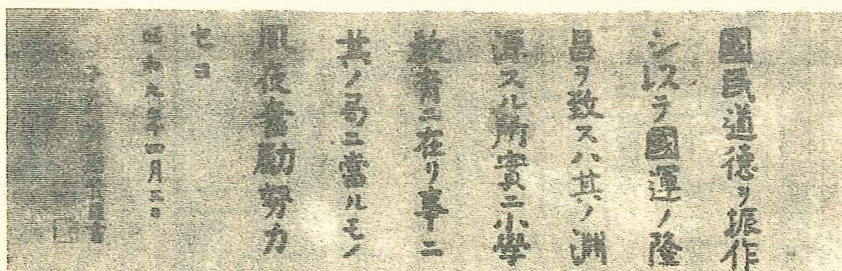 國民道德ヲ振作
シ以テ國運ノ隆
昌ヲ致スハ其ノ淵
源スル所實ニ小學
教育ニ在リ事ニ
其ノ局ニ當ルモノ
夙夜奮勵努力
セヨ
昭和九年四月三日